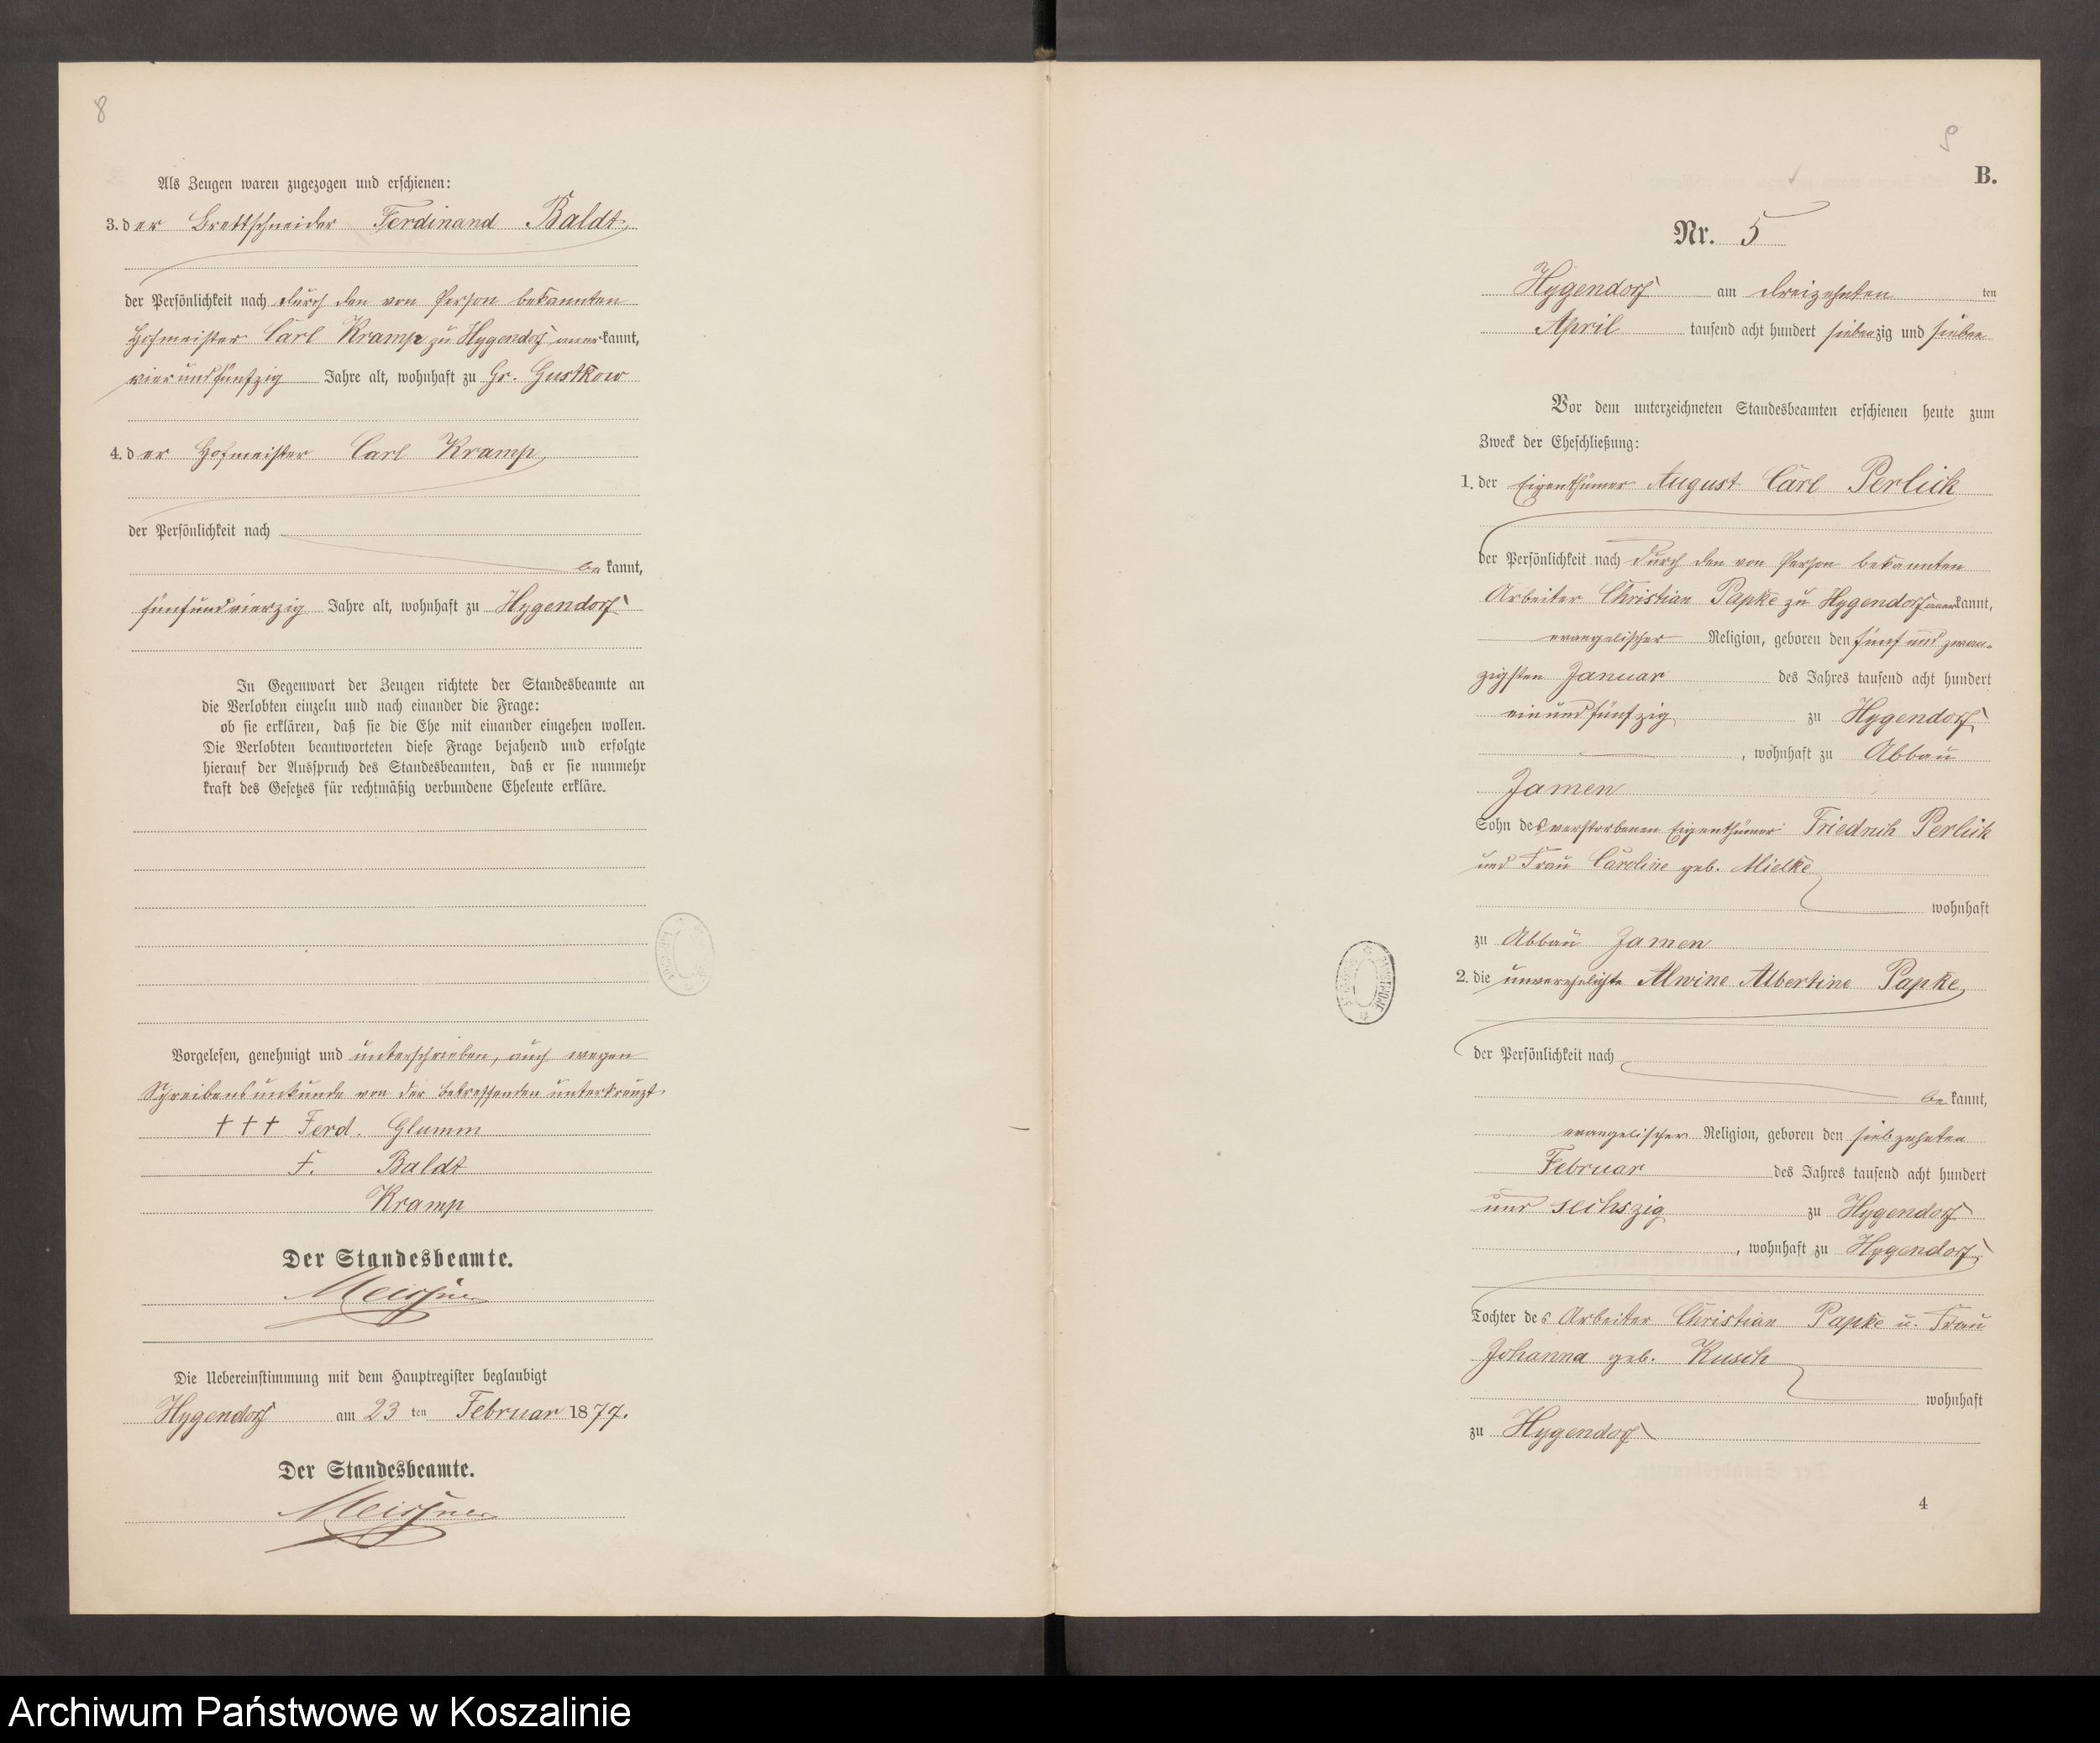 8
Als Zeugen waren zugezogen und erschienen:
3. der Brettschneider Ferdinand Baldt,
der Persönlichkeit nach durch den von Person bekannten
Hofmeister Carl Kramp zu Hygendorf anerkannt,
vierundfünfzig Jahre alt, wohnhaft zu Gr. Gustkow
4. der Hofmeister Carl Kramp,
der Persönlichkeit nach
bekannt,
fünfundvierzig Jahre alt, wohnhaft zu Hygendorf
In Gegenwart der Zeugen richtete der Standesbeamte an
die Verlobten einzeln und nach einander die Frage:
ob sie erklären, daß sie die Ehe mit einander eingehen wollen.
Die Verlobten beantworteten diese Frage bejahend und erfolgte
hierauf der Ausspruch des Standesbeamten, daß er sie nunmehr
kraft des Gesetzes für rechtmäßig verbundene Eheleute erkläre.
Vorgelesen, genehmigt und unterschrieben, auch wegen
Schreibensunkunde von der betreffenden unterkreuzt,
††† Ferd. Glumm
F. Baldt
Kramp
Der Standesbeamte.
Meissner
Die Uebereinstimmung mit dem Hauptregister beglaubigt
Hygendorf am 23 ten Februar 1877.
Der Standesbeamte.
Meissner
9
B.
Nr. 5
Hygendorf am dreizehnten ten
April tausend acht hundert siebenzig und sieben
Vor dem unterzeichneten Standesbeamten erschienen heute zum
Zweck der Eheschließung:
1. der Eigenthümer August Carl Perlick
der Persönlichkeit nach durch den von Person bekannten
Arbeiter Christian Papke zu Hygendorf anerkannt,
evangelischer Religion, geboren den fünf und zwan-
zigsten Januar des Jahres tausend acht hundert
einundfünfzig zu Hygendorf
, wohnhaft zu Abbau
Jamen
Sohn des verstorbenen Eigenthümer Friedrich Perlick
und Frau Caroline geb. Mielke
wohnhaft
zu Abbau Jamen
2. die unverehelichte Alwine Albertine Papke,
der Persönlichkeit nach
bekannt,
evangelischer Religion, geboren den siebzehnten
Februar des Jahres tausend acht hundert
und sechszig zu Hygendorf
, wohnhaft zu Hygendorf,
Tochter des Arbeiter Christian Papke u. Frau
Johanna geb. Kusch
wohnhaft
zu Hygendorf
4
Archiwum Państwowe w Koszalinie